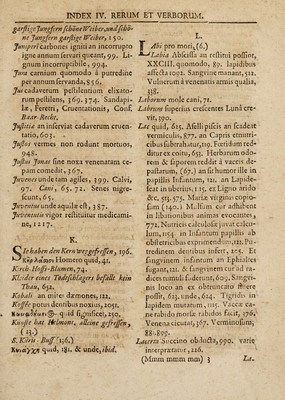 INDEX IV. RERUM ET VERBORUM.
garstige Jungfern schöne Weiber, und schö-
ne Jungfern garstige Weiber, 150.
Juniperi carbones igniti an incorrupto
igne annum servari queant, 99. Li-
gnum incorruptibile, 994.
Jura carnium quomodo à putredine
per annum servanda, 836.
Jus cadaverum pestilentium elixato-
rum pestilens, 369. 374. Sandapi-
læ, Feretri, Cruentationis, Conf.
Baar-Rechte.
Justitia an inserviat cadaverum cruen-
tatio, 603.
Justos vermes non rodunt mortuos,
948.
Justus Jonas sine noxa venenatam ce-
pam comedit, 367.
Juvenes unde tam agiles, 199. Calvi,
97. Cani, 65. 72. Senes nigre-
scunt, 65.
Juventus unde aquilæ est, 387.
Juventutis vigor restituitur medicami-
ne, 1217.
K.
Kehaben den Kern weggefressen, 196.
Homero quid, 41.
Kirch-Hoffs-Blumen, 74.
Kleider eines Todtschlägers befällt kein
Thau, 652.
Kobali an mites dæmones, 122.
Koffée potus dentibus noxius, 1051.
quid significet, 250.
Künste hat Helmont, alleine gefressen,
(23.)
S. Kürts-Buß (136.)
quid, 181. & unde, ibid.
L.
Labi pro mori, (6.)
Labia Abscissa an restitui possint,
XXCIII. quomodo, 89. lapidibus
affecta 1092. Sangvine manant, 511.
Vulnerum à venenatis armis qualia,
338.
Laborum mole cani, 71.
Laborum superius crescentes Lunâ cre-
vit, 390.
Lac quid, 653. Aselli piscis an scadeat
vermiculis, 877. an Capris enutri-
cibus subtrahatur, 119. Fœtidum red-
ditur ex coitu, 653. Herbarum odo-
rem & saporem reddat à vaccis de-
pastarum, (67.) an si humor ille in
papillis Infantum, 121. an Lapide-
scat in uberibus, 115. ex Ligno arido
&c, 513. 575. Mariæ virginis copio-
sum (140.) Missum cur adhibent
in libationibus animas evocantes,
772. Nutricis calculosæ juvat calcu-
lum, 154. in Infantum papillis ab
obstetricibus exprimendum, 122. Pu-
tredinem dentibus infert, 215. Et
sangvinem infantum an Ephialtes
sugant, 121. & sangvinem cur ad ra-
dices tumuli funderent, 609. Sangvi-
nis loco an ex obtruncato fluere
possit, 623. unde, 624. Tigridis in
lapidem mutatum, 115. Vacca ca-
ne rabido morsæ rabidos facit, 376,
Venena sicutat, 367. Verminosum,
88. 899.
Lacerta Succino obducta, 990. variè
interpretatur, 226.
(Mmm mmm) § La-